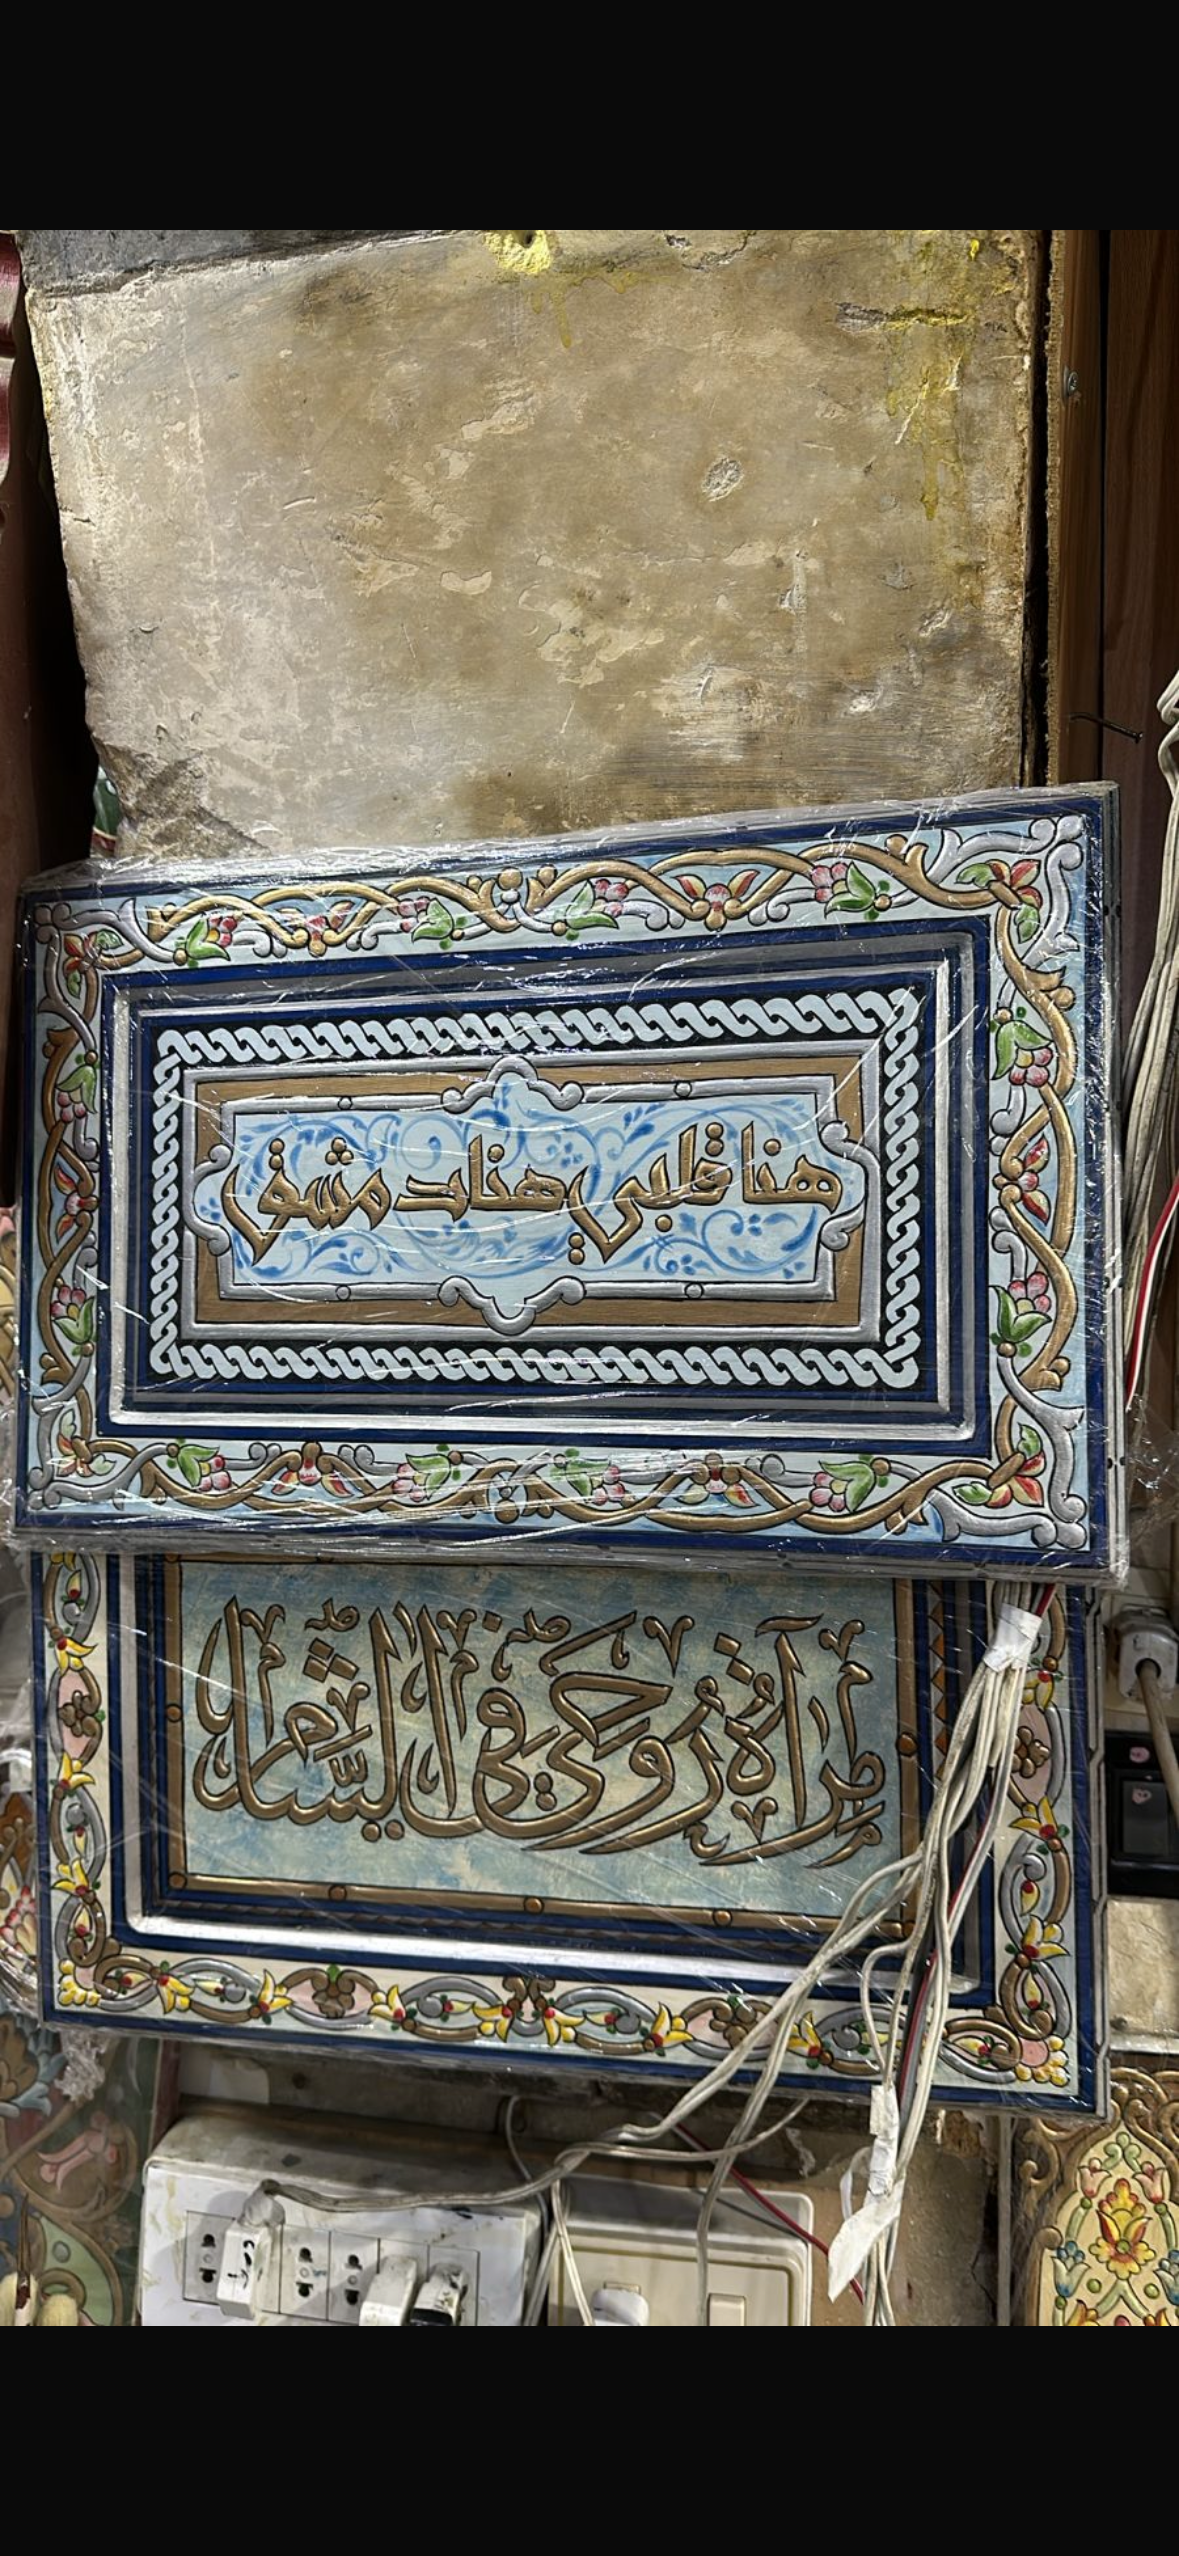 هنا قلبي هنا دمشق
مرآة روحي في الشام